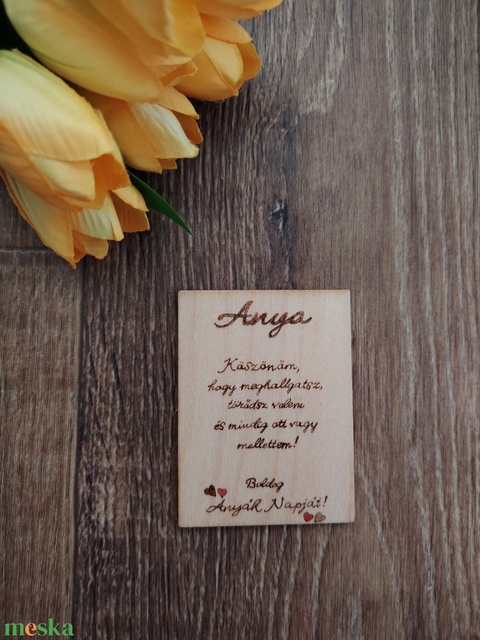 Anya
Köszönöm,
hogy meghallgatsz,
törődsz velem
és mindig ott vagy
mellettem!
Boldog
Anyák Napját!
meska